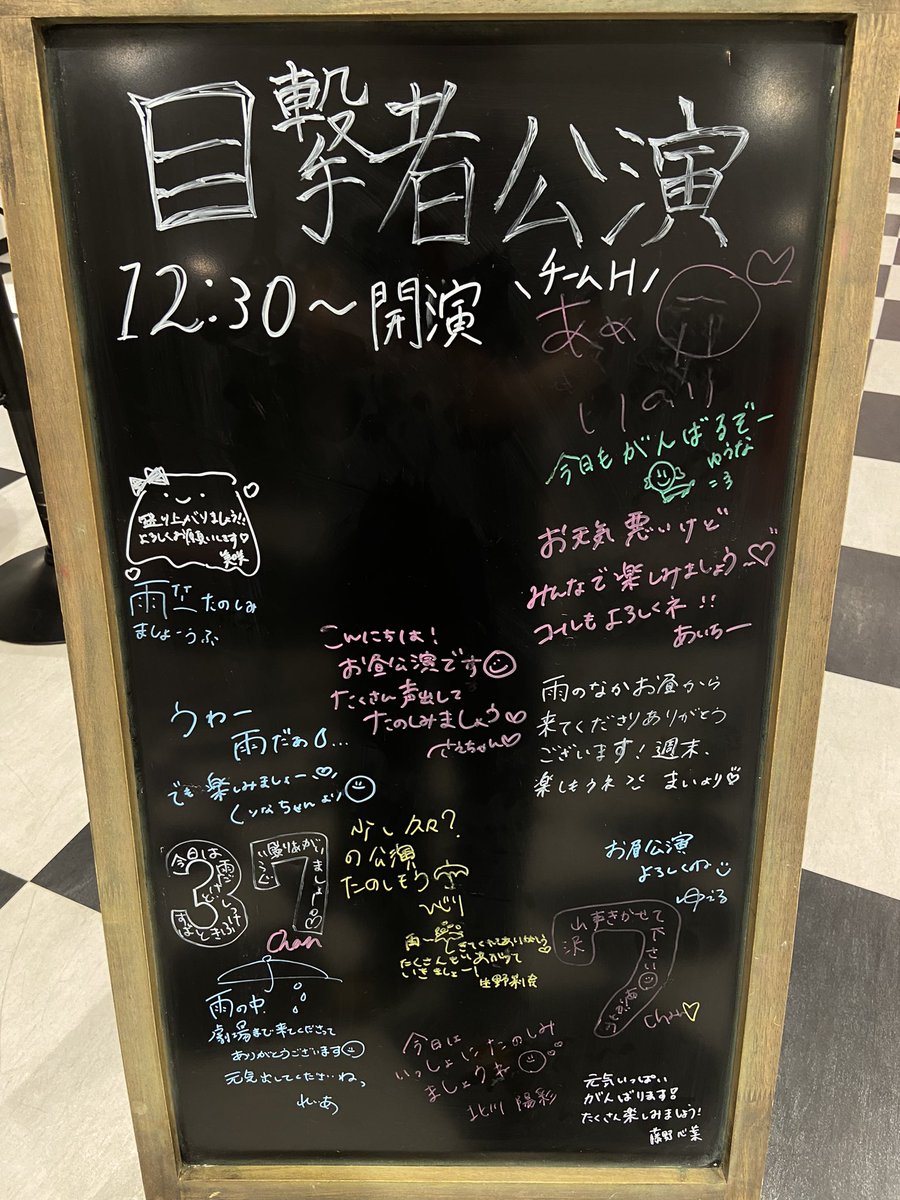 目撃者公演
12:30〜開演
\チームH/
あめ
いり
今日もがんばるぞー
ゆうな
盛り上がりましょう!!
よろしくお願いします♡
美咲
お天気悪いけど
みんなで楽しみましょう♡
コールもよろしくネ!!
あいちー
雨たのしみ
ましょーうふ
こんにちは!
お昼公演です
たくさん声出して
たのしみましょう♡
さえちゃん♡
雨のなかお昼から
来てくださりありがとう
ございます!週末、
楽しもうネ まいより♡
うわー
雨だぁ...
でも楽しみましょー♡
りなちゃんより
少し久々?
の公演
たのしもう
お昼公演
よろしくね
ゆる
37
今日は雨だけど
盛りあがり
ましょー
Chan
雨〜
きてくれてありがとう
たくさんもりあがって
いきましょー!
7
沢山声きかせて下さい
Chan♡
雨の中
劇場まで来てくださって
ありがとうございます
元気出してくださいねっ
れいあ
今日は
いっしょにたのしみ
ましょうね
北川 陽彩
元気いっぱい
がんばります!
たくさん楽しみましょう!
藤野 心葉